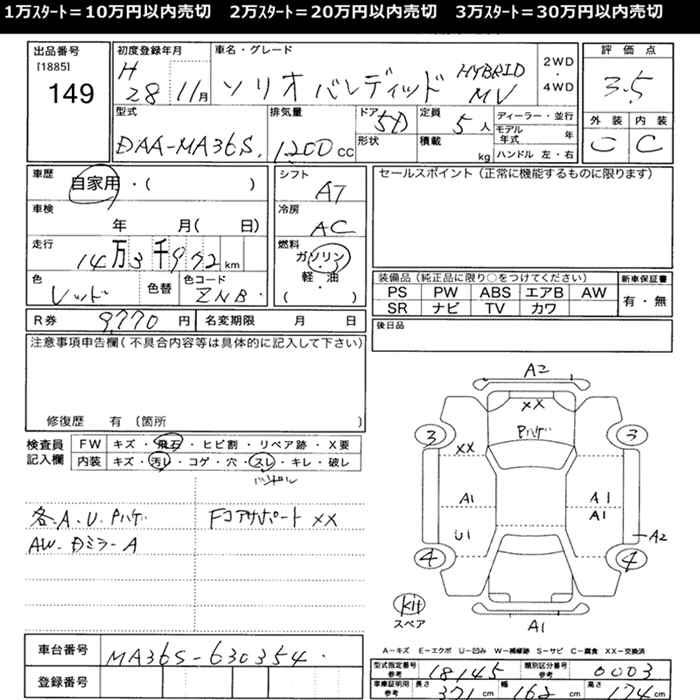 1万ｽﾀｰﾄ＝10万円以内売切　2万ｽﾀｰﾄ＝20万円以内売切　3万ｽﾀｰﾄ＝30万円以内売切
出品番号
[1885]
149
初度登録年月
H
28 11月
車名・グレード
ソリオ バンディッド HYBRID MV
2WD
・
4WD
評価点
3.5
外装 内装
C C
型式
DAA-MA36S.
排気量
1200 CC
ドア 5D
形状
定員 5人
積載 kg
ディーラー・並行
モデル年式 年
ハンドル 左・右
車歴
自家用・( )
車検
年 月( 日)
走行
14万3千972km
色
レッド
色替
色コード
ZNB.
シフト
AT
冷房
AC
燃料
ガソリン
・
軽・油
( )
セールスポイント（正常に機能するものに限ります）
装備品（純正品に限り○をつけてください）
PS PW ABS エアB AW
SR ナビ TV カワ
新車保証書
有・無
後日品
R券 9770円 名変期限 月 日
注意事項申告欄（不具合内容等は具体的に記入して下さい）
修復歴 有（箇所 ）
検査員
記入欄
FW キズ・飛石・ヒビ割・リペア跡・X要
内装 キズ・汚レ・コゲ・穴・スレ・キレ・破レ
ハンドル
各.A.U.Pハゲ
AW.Dミラ-A
Fコアサポート XX
A2
XX
Pハゲ
3 3
XX
A1 A1
A1
U1
A2
4 4
Kit
スペア
A1
A-キズ E-エクボ U-凹み W-補修跡 S-サビ C-腐食 XX-交換済
車台番号
MA36S-630354.
登録番号
型式指定番号
参考
18145
類別区分番号
参考
0003
車庫証明用
参考
長さ 371cm
幅 162cm
高さ 174cm